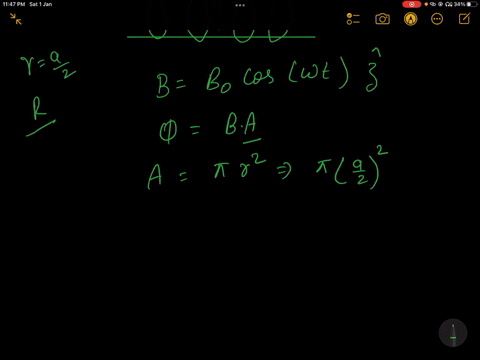 11:47 PM Sat 1 Jan
34%
r = a/2
R
B = B₀ cos (ωt) ẑ
Φ = B.A
A = π r² ⇒ π (a/2)²